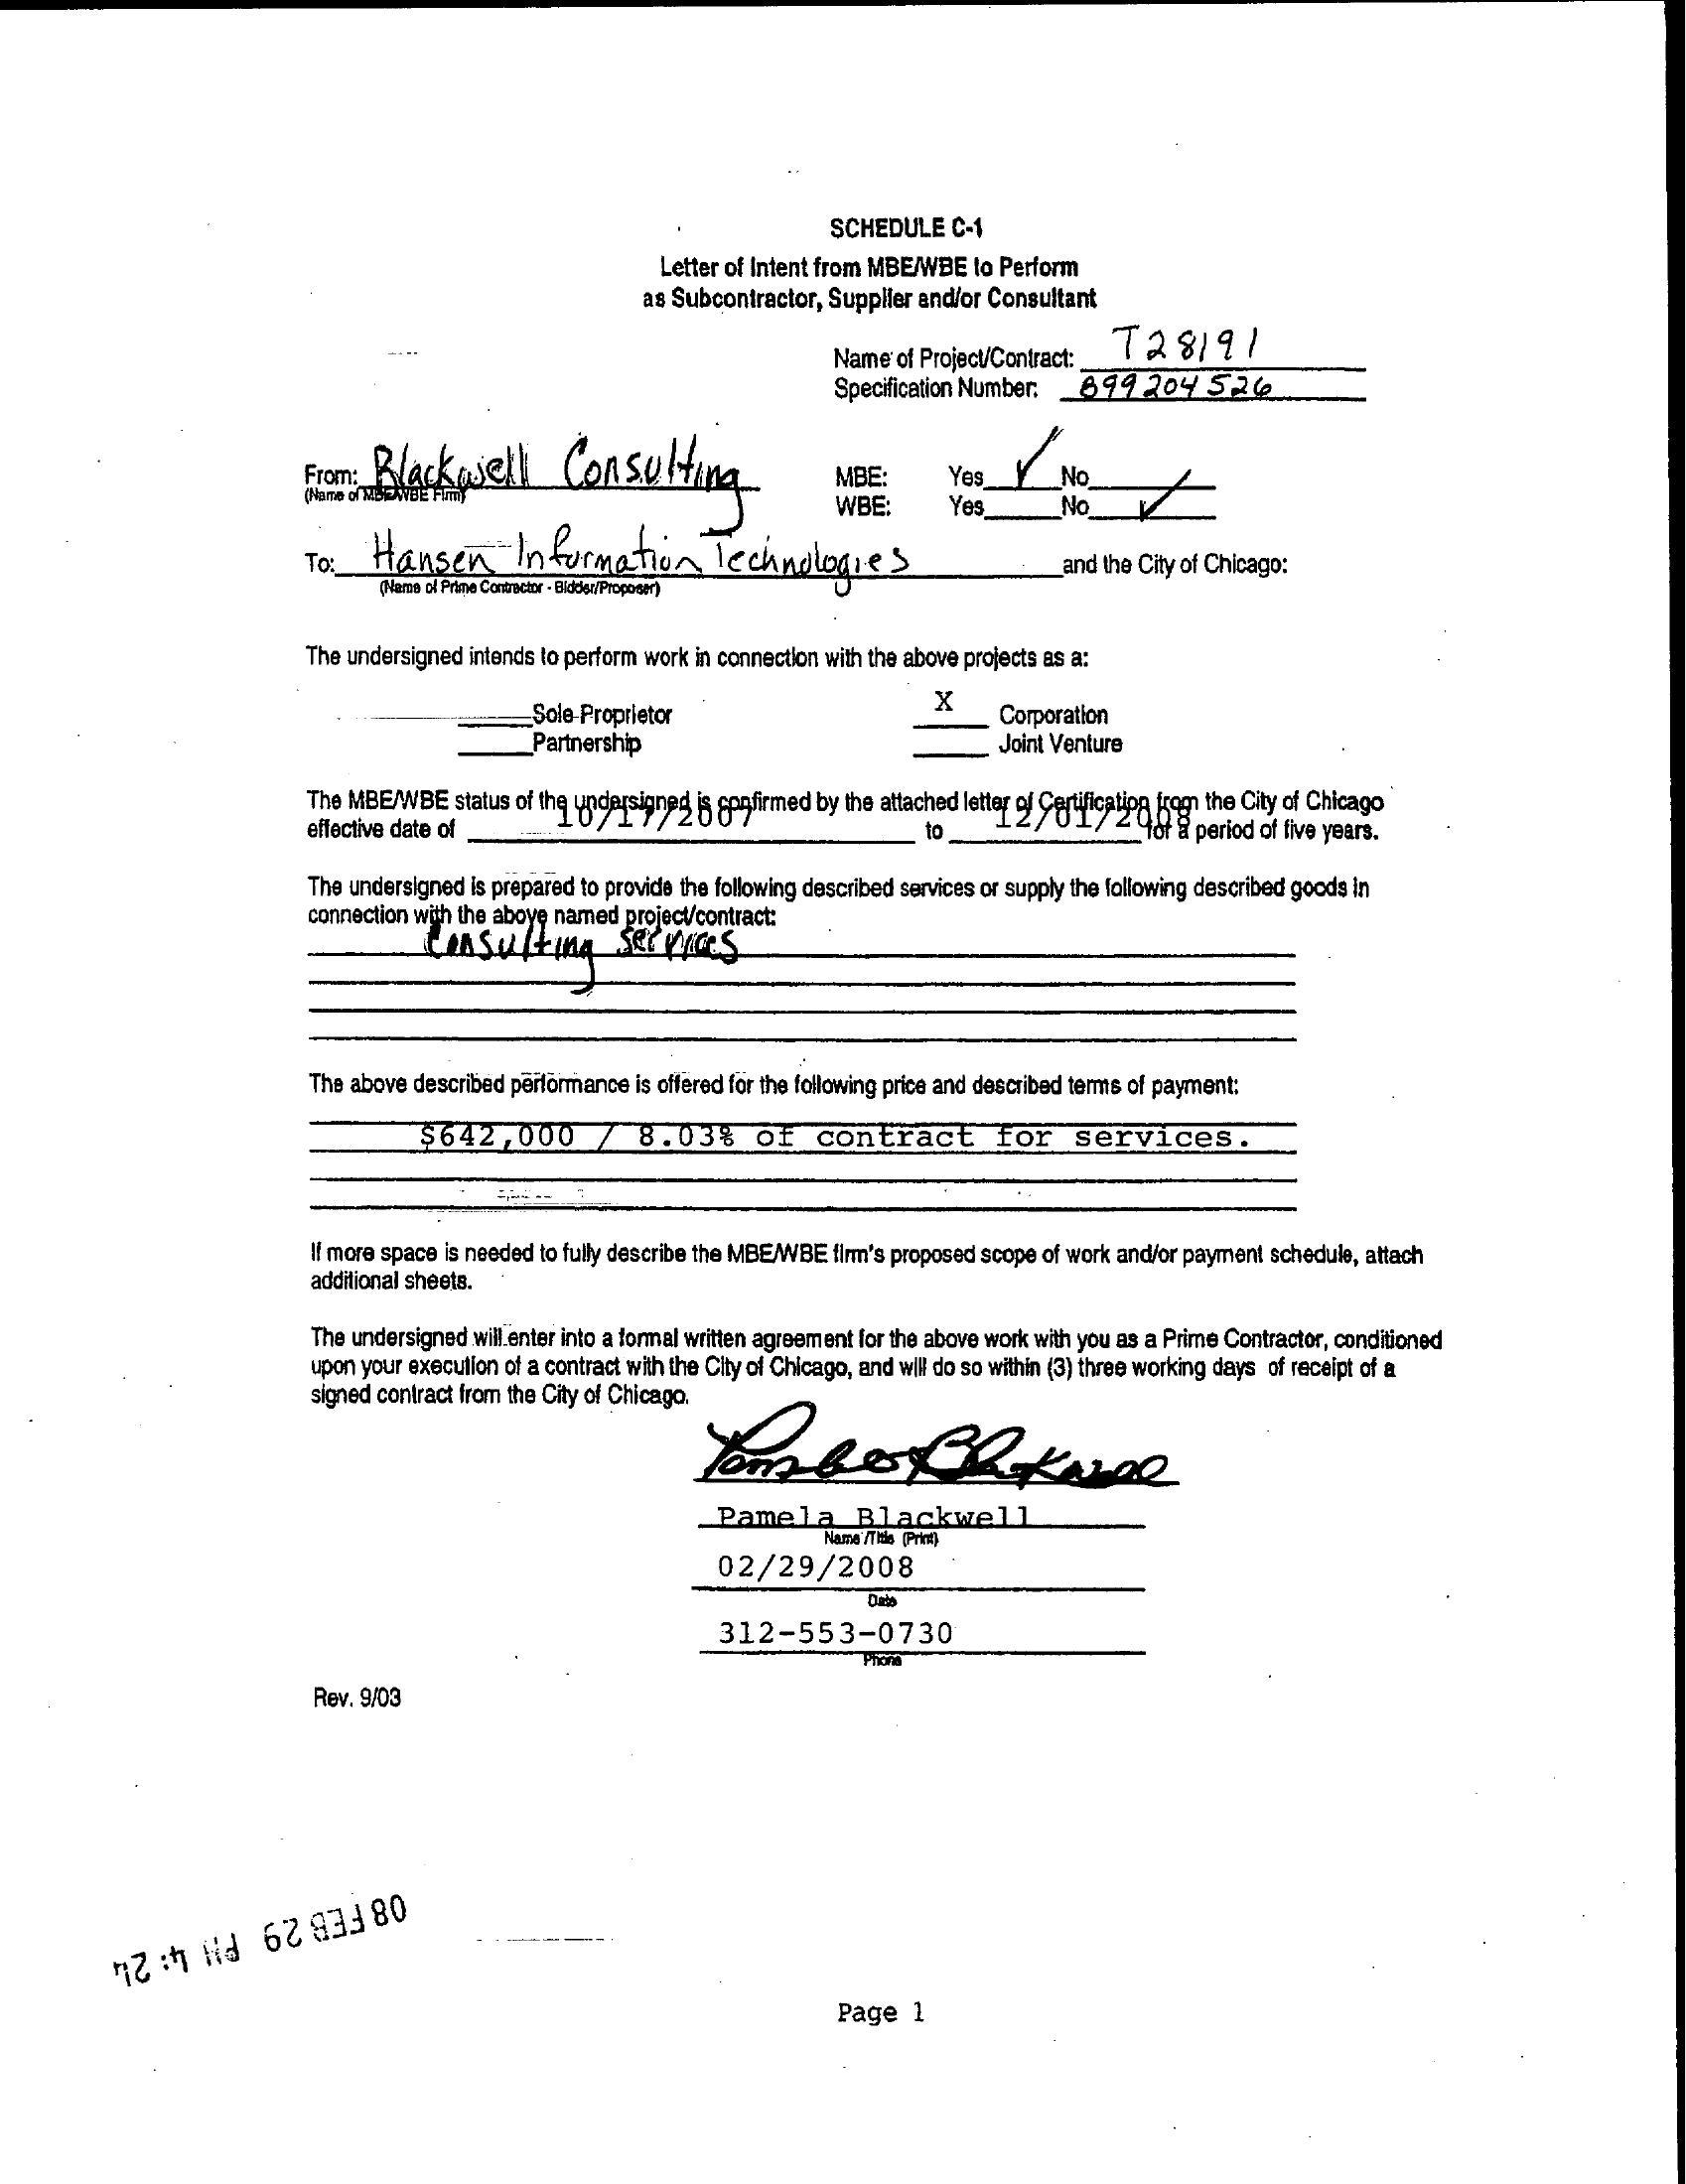 SCHEDULE C-1
Letter of Intent from MBE/WBE to Perform
as Subcontractor, Supplier and/or Consultant
Name of Project/Contract: T28191
Specification Number: B99204526
From: Blackwell Consulting MBE: Yes ✓ No
(Name of MBE/WBE Firm) WBE: Yes No ✓
To: Hansen Information Technologies and the City of Chicago:
(Name of Prime Contractor - Bidder/Proposer)
The undersigned intends to perform work in connection with the above projects as a:
Sole Proprietor X Corporation
Partnership Joint Venture
The MBE/WBE status of the undersigned is confirmed by the attached letter of Certification from the City of Chicago
effective date of 10/17/2007 to 12/01/2008 for a period of five years.
The undersigned is prepared to provide the following described services or supply the following described goods in
connection with the above named project/contract:
Consulting services
The above described performance is offered for the following price and described terms of payment:
$642,000 / 8.03% of contract for services.
If more space is needed to fully describe the MBE/WBE firm's proposed scope of work and/or payment schedule, attach
additional sheets.
The undersigned will enter into a formal written agreement for the above work with you as a Prime Contractor, conditioned
upon your execution of a contract with the City of Chicago, and will do so within (3) three working days of receipt of a
signed contract from the City of Chicago.
Pamela Blackwell
Pamela Blackwell
Name/Title (Print)
02/29/2008
Date
312-553-0730
Phone
Rev. 9/03
08 FEB 29 PM 4:24
Page 1